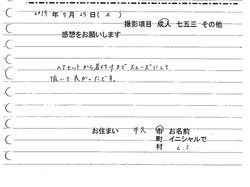 2019年5月25日(土)
撮影項目 成人 七五三 その他
感想をお願いします
ヘアセットから着付けまでスムーズにして
頂いて良かったです。
お住まい 市 お名前
町 イニシャルで
村 C.S